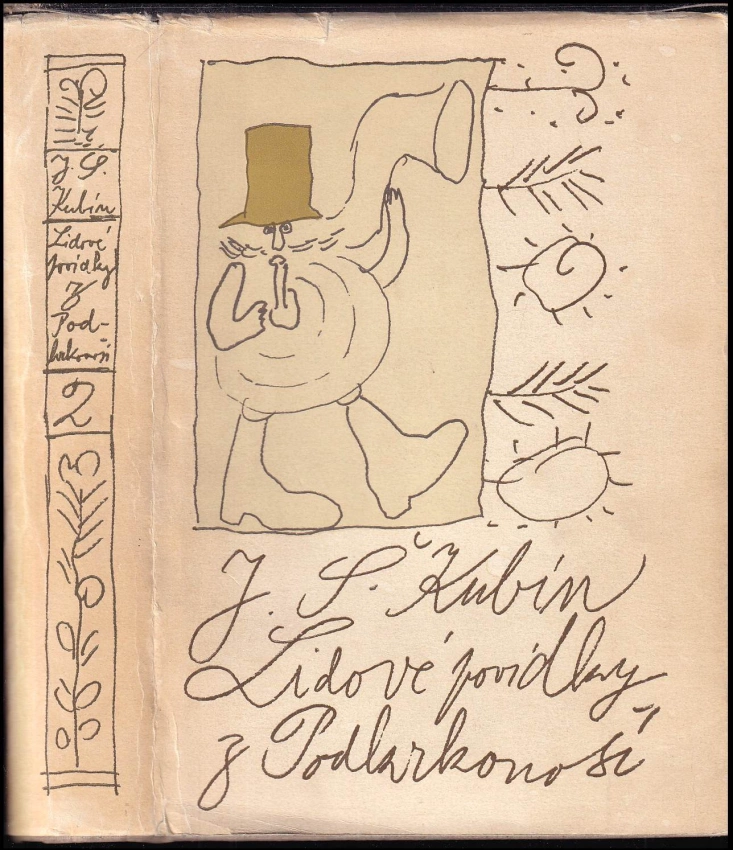 J. Š.
Kubín
Lidové
povídky
z
Pod-
krkonoší
2
J. Š. Kubín
Lidové povídky
z Podkrkonoší